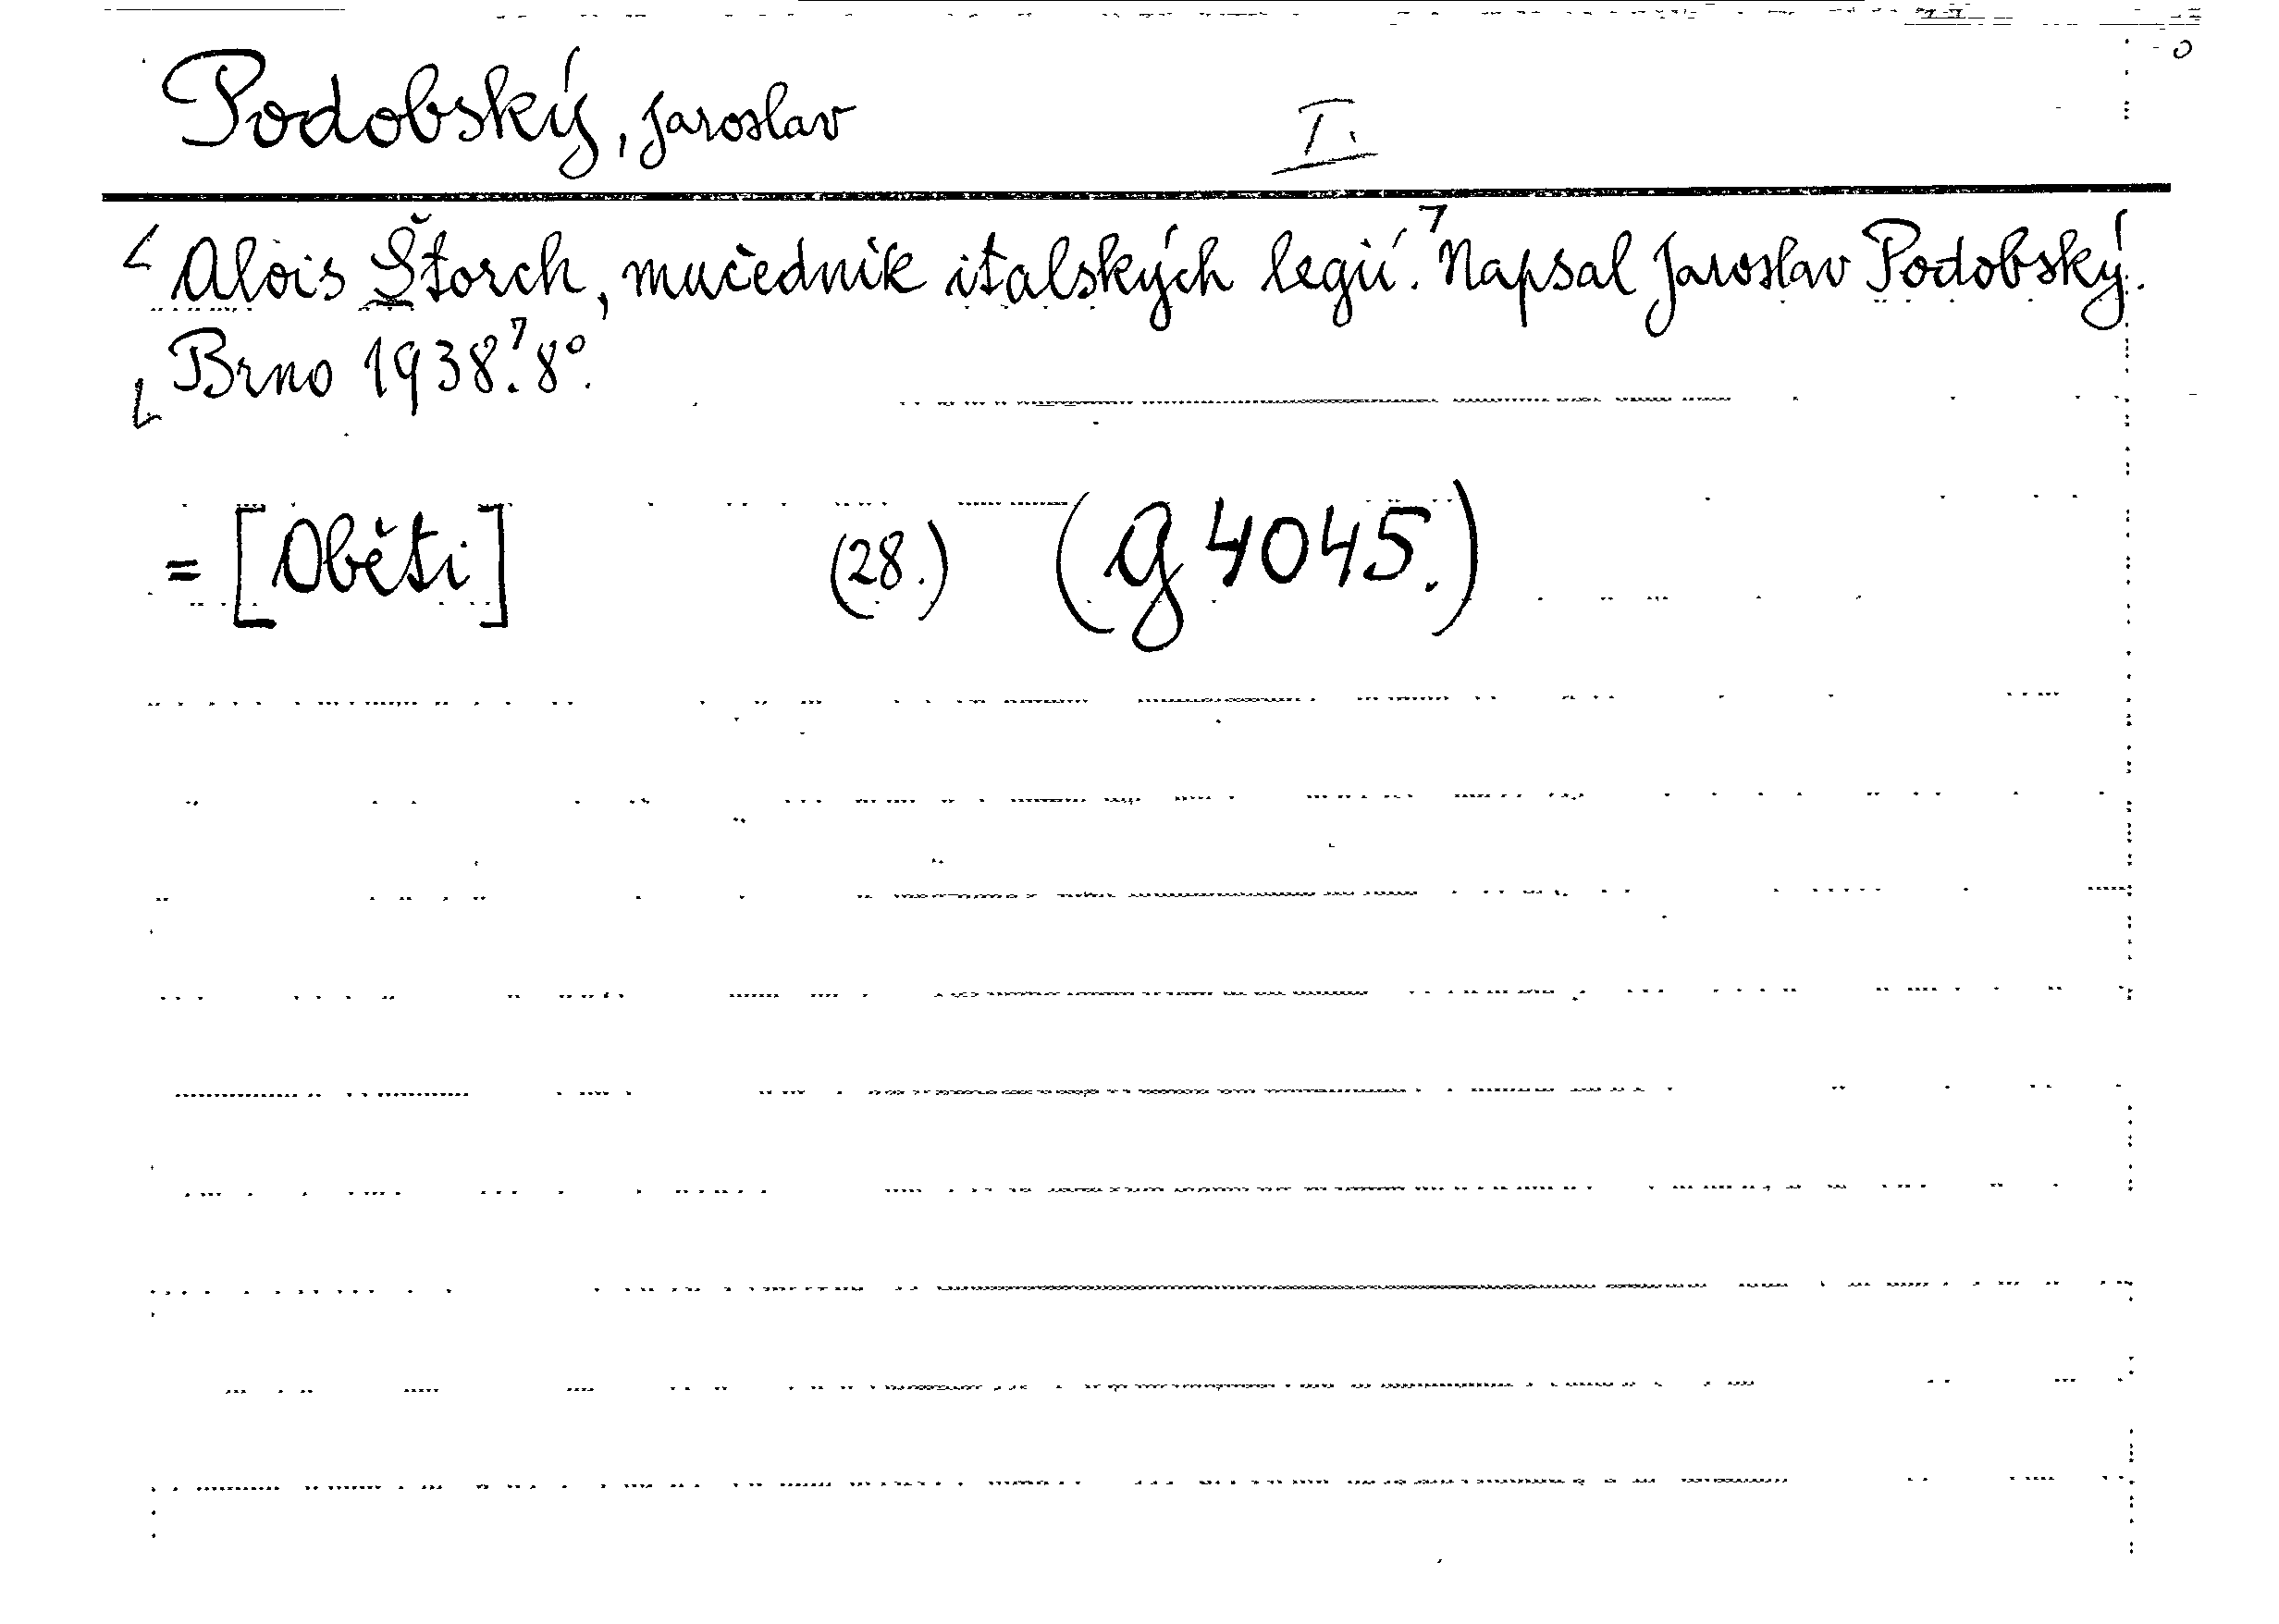 Podobský, Jaroslav I.
Alois Štorch, mučedník italských legií. Napsal Jaroslav Podobský.
Brno 1938. 8°.
= [Oběti] (28.) (g 4045.)